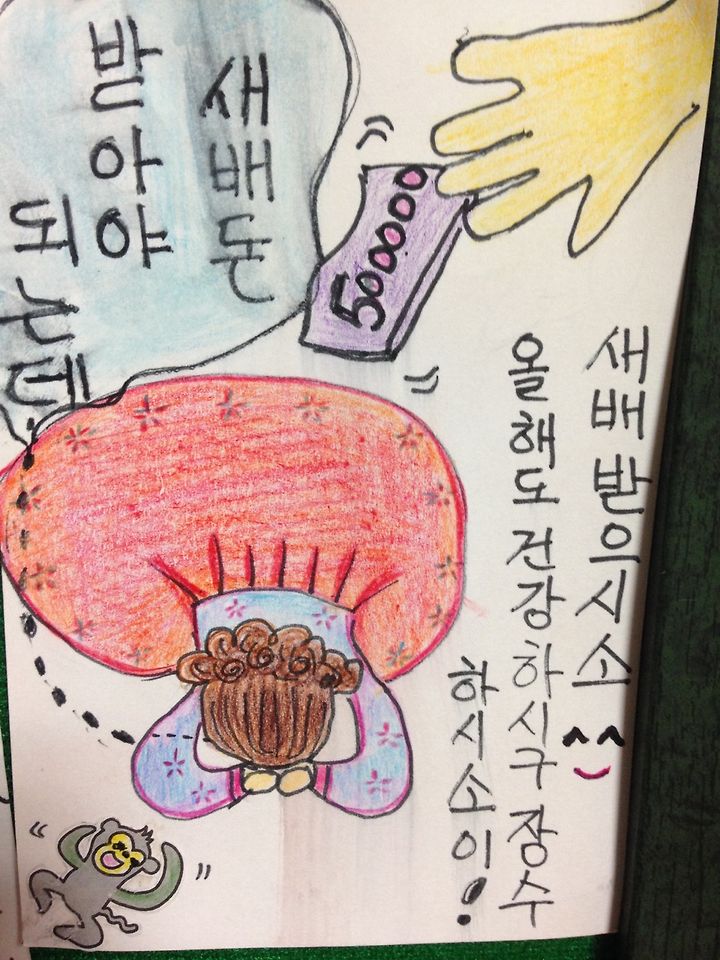 새배돈
받아야
되는데
500000
새배 받으시소 ^^
올해도 건강하시구 장수
하시소이!